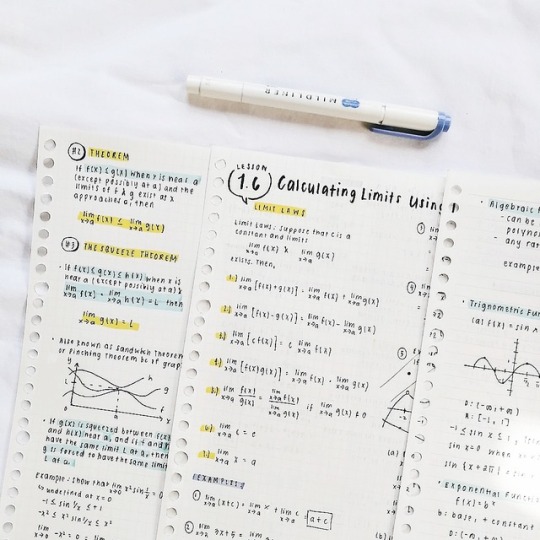 MILDLINER
#2 THEOREM
If f(x) ≤ g(x) when x is near a
(except possibly at a) and the
limits of f & g exist as x
approaches a, then
lim x→a f(x) ≤ lim x→a g(x)
#3 THE SQUEEZE THEOREM
• If f(x) ≤ g(x) ≤ h(x) when x is
near a (except possibly at a) &
lim x→a f(x) = lim x→a h(x) = L then
lim x→a g(x) = L
• Also known as Sandwich Theorem
or Pinching Theorem bc of graph
y
h
g
L
f
0
a
x
• If g(x) is squeezed between f(x)
and h(x) near a, and if f and
have the same limit L at a, then
g is forced to have the same limit
L at a.
Example: show that lim x→0 x² sin 1/x =
↳ undefined at x = 0
-1 ≤ sin 1/x ≤ +1
-x² ≤ x² sin 1/x ≤ x²
lim -x² = 0 = lim
LESSON
1.6 Calculating Limits Using
LIMIT LAWS
Limit Laws: Suppose that c is a
constant and limits
lim x→a f(x) & lim x→a g(x)
exists, then,
1.) lim x→a [f(x)+g(x)] = lim x→a f(x) + lim x→a g(x)
2.) lim x→a [f(x)-g(x)] = lim x→a f(x) - lim x→a g(x)
3.) lim x→a [cf(x)] = c lim x→a f(x)
4.) lim x→a [f(x)g(x)] = lim x→a f(x) · lim x→a g(x)
5.) lim x→a f(x)/g(x) = lim x→a f(x) / lim x→a g(x) if lim x→a g(x) ≠ 0
6.) lim x→a c = c
7.) lim x→a x = a
EXAMPLES
① lim x→a (x+c) = lim x→a x + lim x→a c = a+c
②
(a)
(b)
• Algebraic f
- can be
polyno
- any rat
example
• Trignometric Fu
(a) f(x) = sin x
D: (-∞, +∞)
R: [-1, 1]
-1 ≤ sin x ≤ 1
sin x = 0 when x
• Exponential Functi
f(x) = bˣ
b: base, + constant
D: (-∞, +∞)